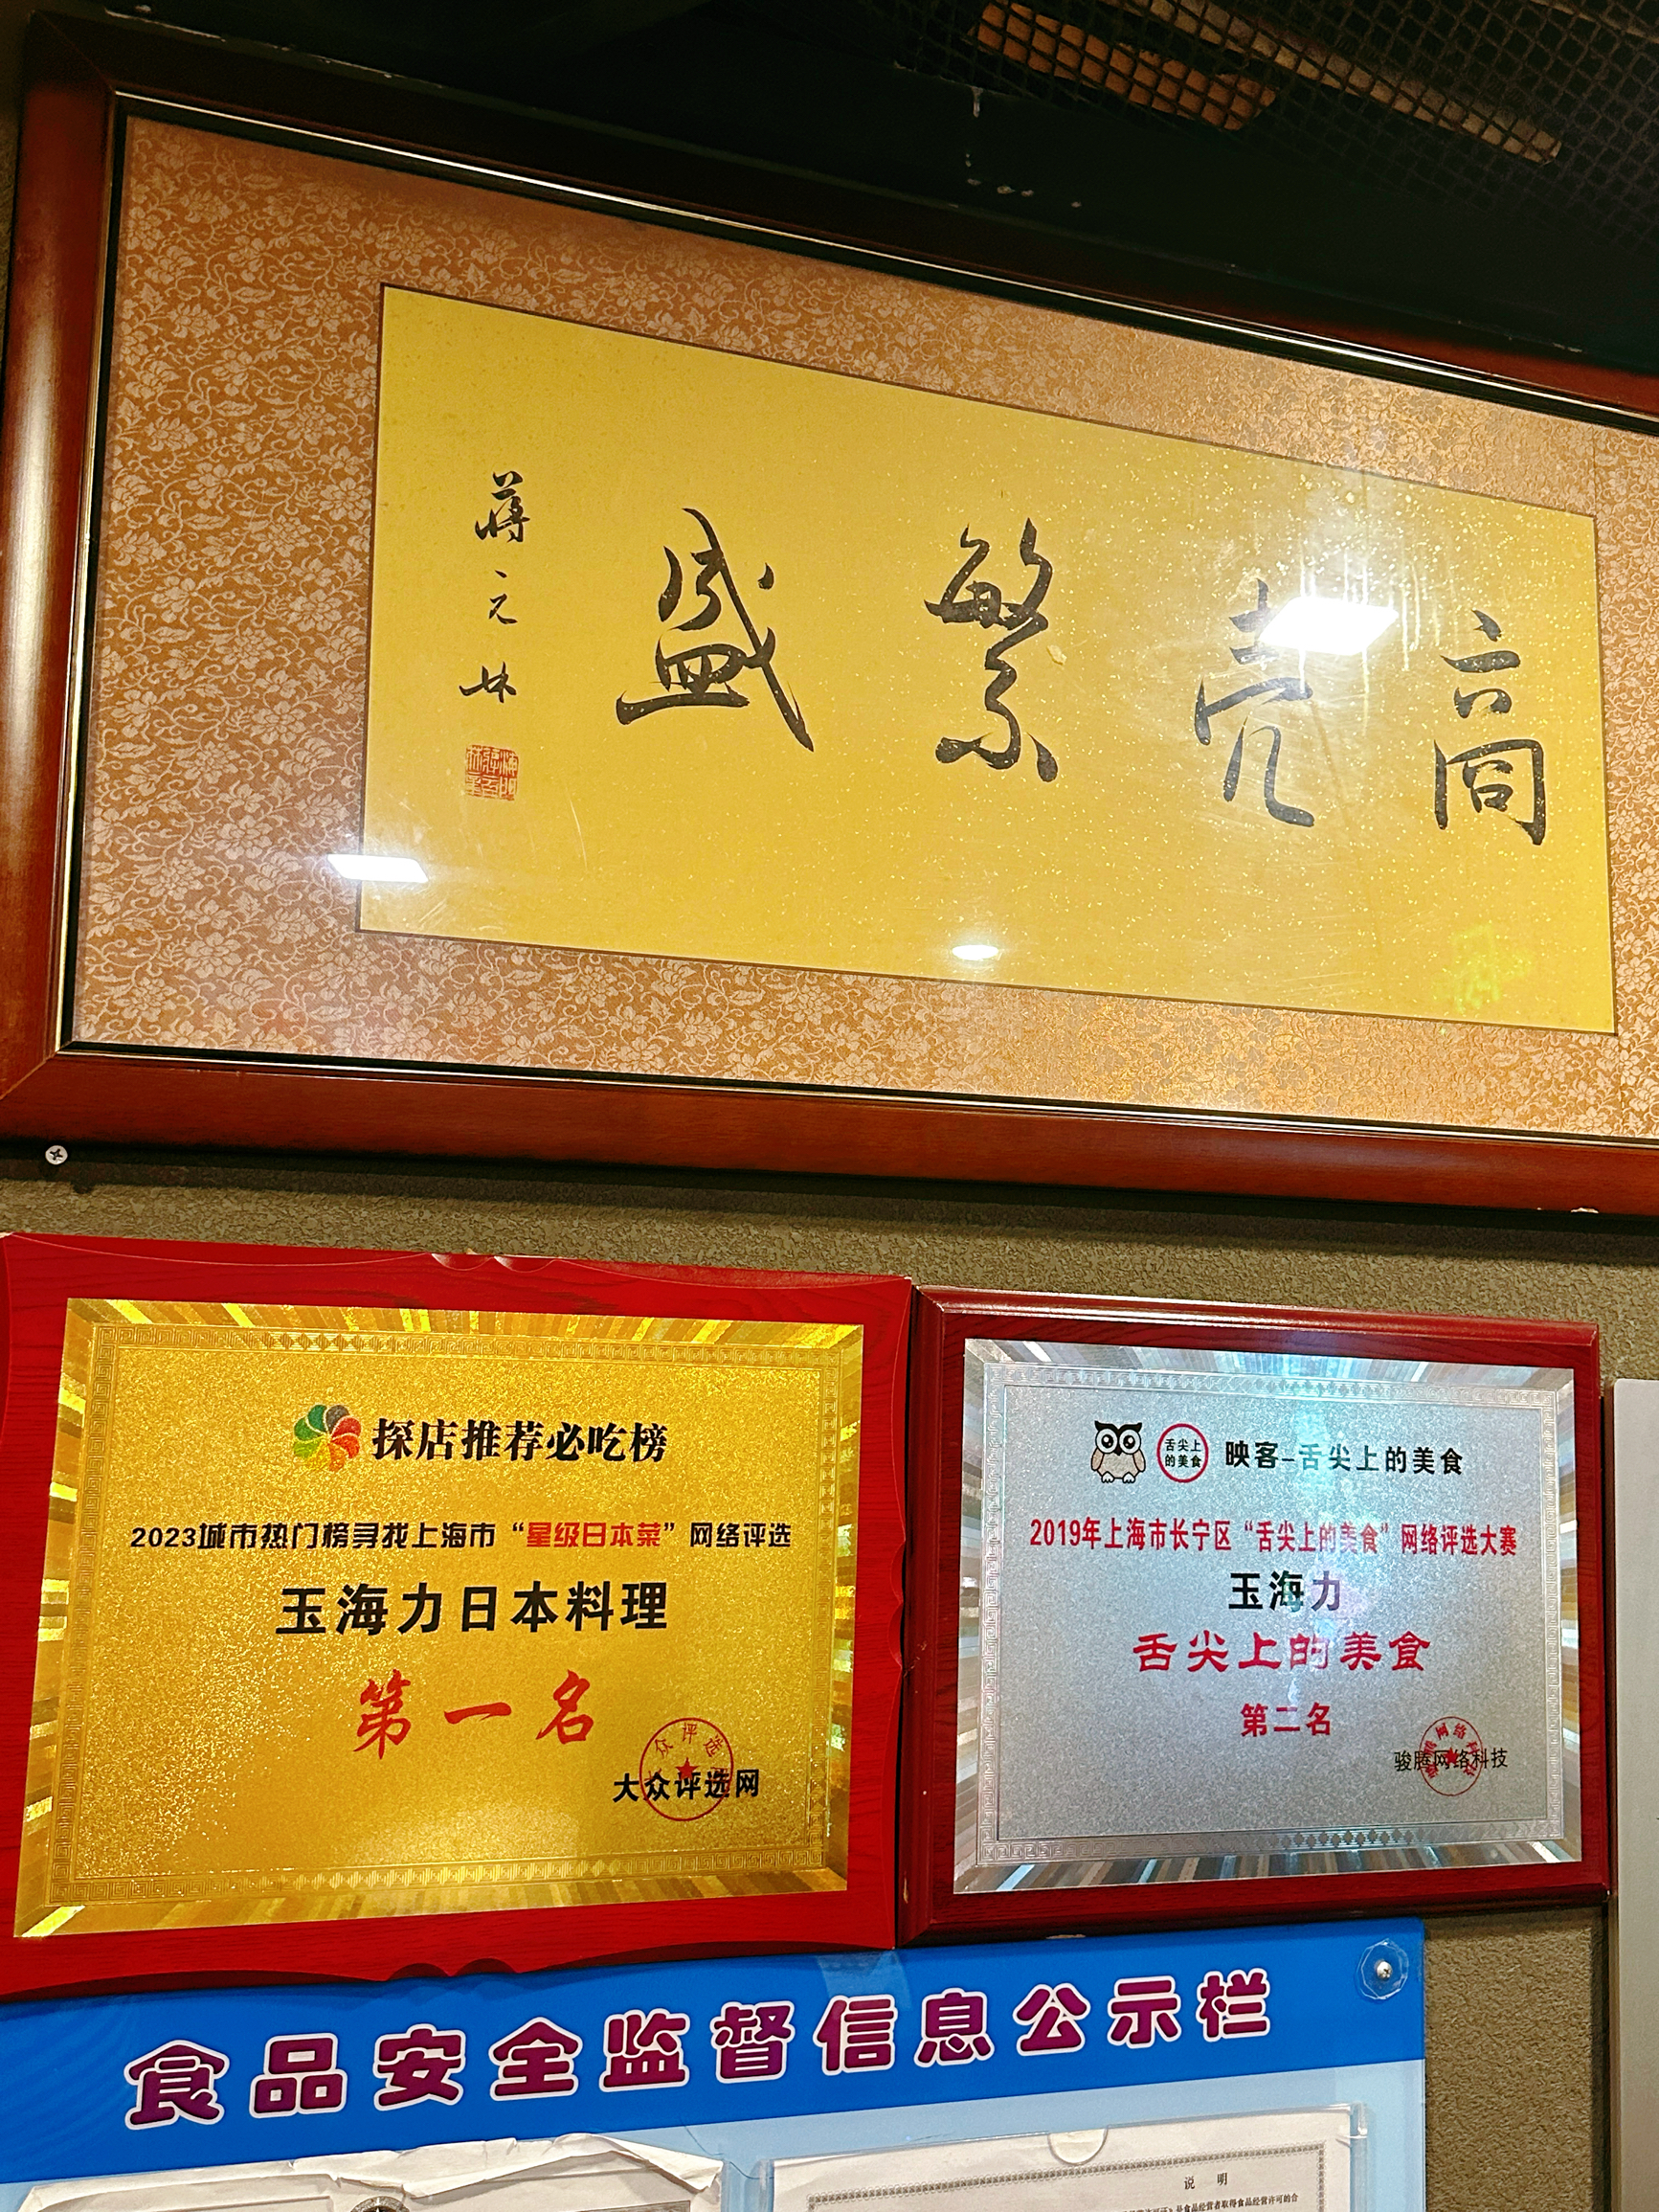 商売繁盛
探店推荐必吃榜
2023城市热门榜寻找上海市“星级日本菜”网络评选
玉海力日本料理
第一名
大众评选网
舌尖上
的美食
映客-舌尖上的美食
2019年上海市长宁区“舌尖上的美食”网络评选大赛
玉海力
舌尖上的美食
第二名
骏腾网络科技
食品安全监督信息公示栏
说 明